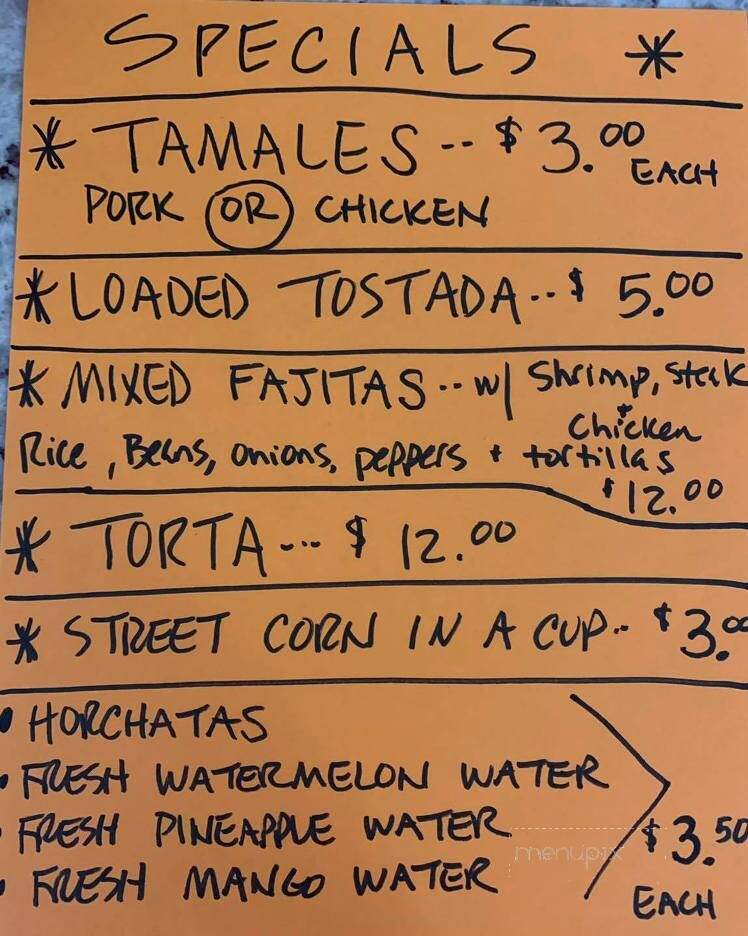 SPECIALS *
* TAMALES -- $3.00 EACH
PORK OR CHICKEN
* LOADED TOSTADA -- $5.00
* MIXED FAJITAS -- w/ Shrimp, Steak
+ Chicken
Rice, Beans, onions, peppers + tortillas
$12.00
* TORTA --- $12.00
* STREET CORN IN A CUP -- $3.00
• HORCHATAS
• FRESH WATERMELON WATER
• FRESH PINEAPPLE WATER
• FRESH MANGO WATER
$3.50
EACH
menupix